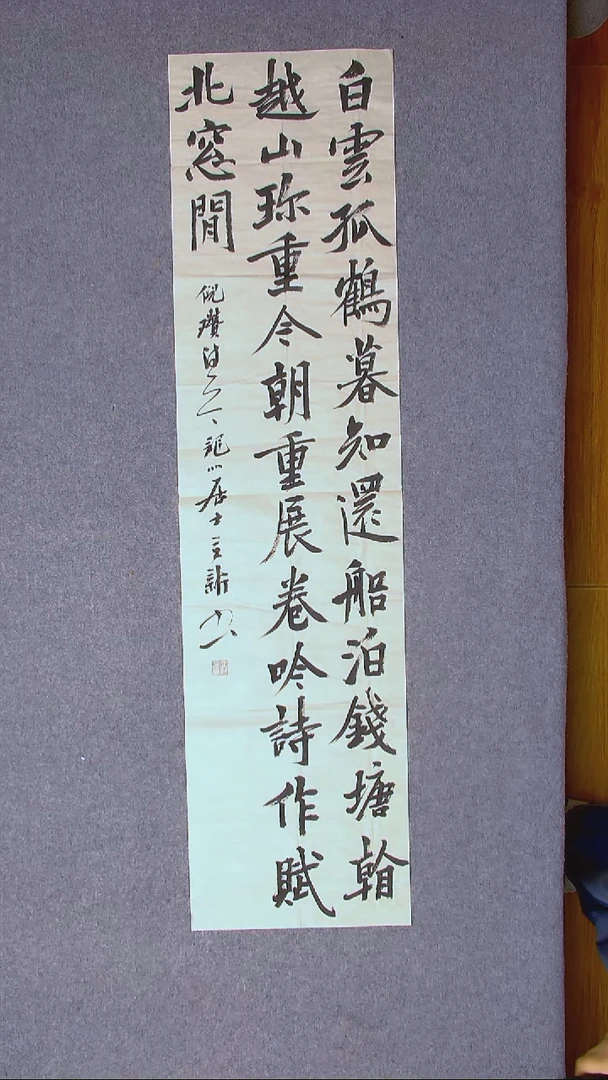 白雲孤鶴暮知還船泊錢塘看
越山珎重今朝重展卷吟詩作賦
北窓閒
倪瓚詩居士